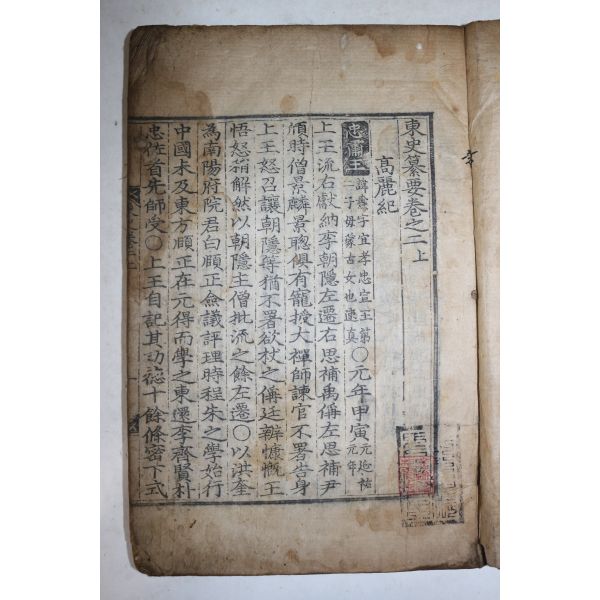 東史纂要卷之二上
高麗紀
忠肅王 諱燾字宜孝忠宣王第
二子母蒙古女也速真 ○元年甲寅 元延祐
元年
上王流右獻納李朝隱左遷右思補禹偁左思補尹
頎時僧景麟景聰俱有寵授大禪師諫官不署告身
上王怒召讓朝隱等猶不署欲杖之偁廷辨慷慨王
悟怒稍解然以朝隱主僧批流之餘左遷○以洪奎
為南陽府院君白頤正僉議評理時程朱之學始行
中國未及東方頤正在元得而學之東還李齊賢朴
忠佐首先師受○上王自記其功德十餘條密下式